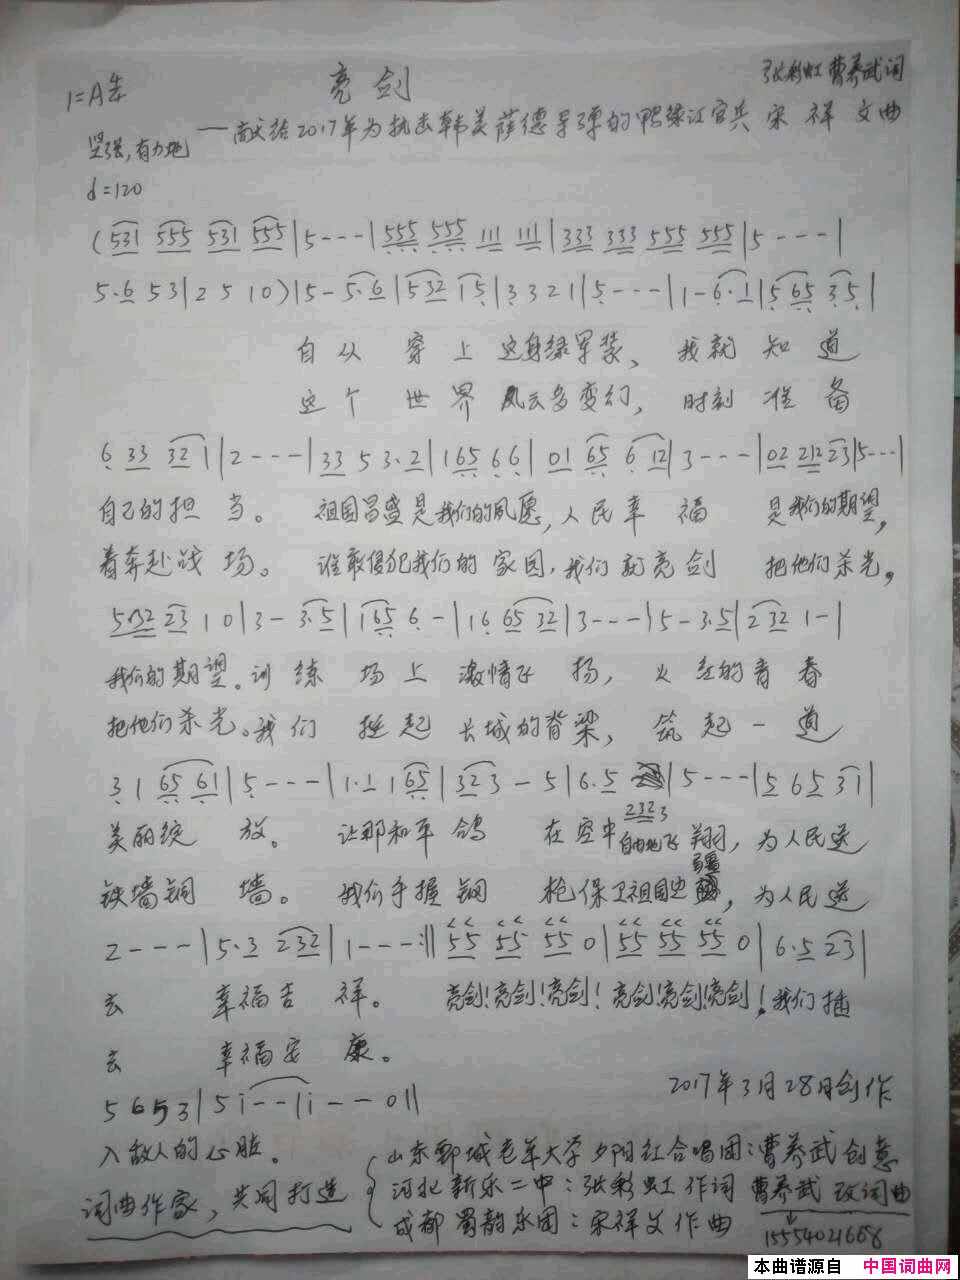 1=A 4/4 亮剑 张彩虹 曹养武词
——献给2017年为抗击韩美萨德导弹的鸭绿江官兵 宋祥文曲
坚强,有力地
♩=120
(531 555 531 555|5---|555 555 111 111|333 333 555 555|5---|
5·6 53|2 5 10)|5-5·6|532 15|3321|5---|1-6·1|5 65 35|
自从穿上这身绿军装、我就知道
这个世界风云多变幻,时刻准备
6 33 32 1|2---|33 5 3·2|1 65 6 6|01 65 6 12|3---|02 212 23|5---|
自己的担当。祖国昌盛是我们的夙愿,人民幸福是我们的期望,
着奔赴战场。谁敢侵犯我们的家园,我们就亮剑把他们杀光,
5·32 23 10|3-3·5|1 65 6-|16 65 32|3---|5-3·5|2 32 1-|
我们的期望。训练场上激情飞扬,火红的青春
把他们杀光。我们挺起长城的脊梁,筑起一道
31 65 61|5---|1·1 1 65|323-5|6·5 2323|5---|5 65 31|
美丽绽放。让那和平鸽在空中自由地飞翔,为人民送
铁墙铜墙。我们手握钢枪保卫祖国边疆,为人民送
2---|5·3 232|1---:‖55 55 55 0|55 55 55 0|6·5 23|
去幸福吉祥。亮剑!亮剑!亮剑!亮剑!亮剑!亮剑!我们插
去幸福安康。
2017年3月28日创作
5653|5i--|i--0‖
入敌人的心脏。
词曲作家,共同打造
山东鄄城老年大学夕阳红合唱团:曹养武创意
河北新乐二中:张彩虹作词 曹养武改词曲
成都蜀韵乐团:宋祥文作曲
15554021668
本曲谱源自 中国词曲网